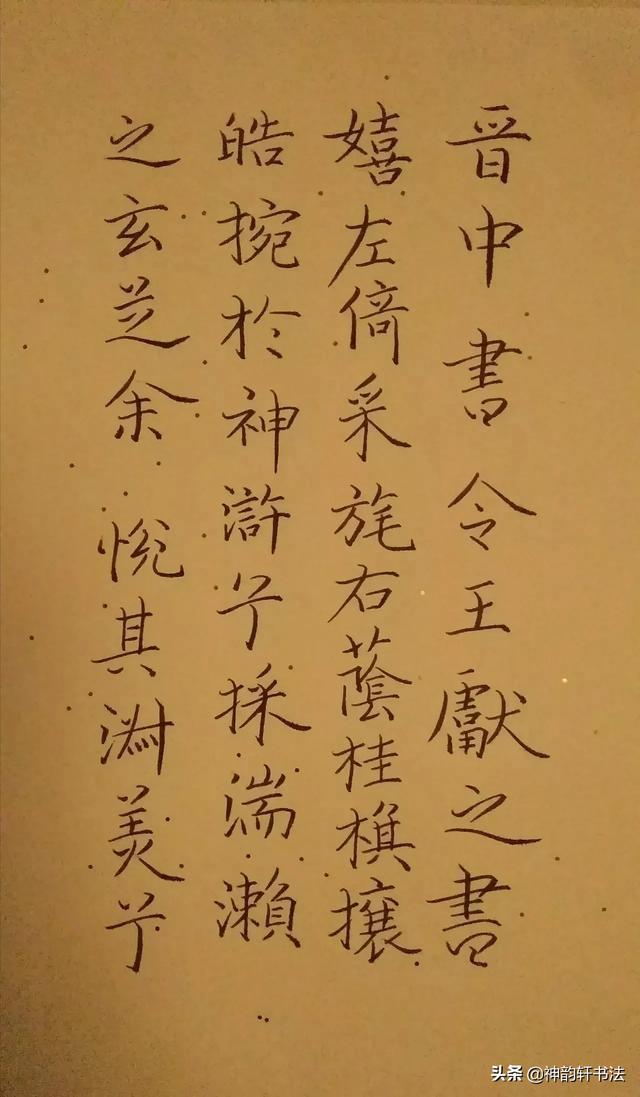 晋中書令王獻之書
嬉左倚采旄右蔭桂旗攘
皓捥於神滸兮採湍瀨
之玄芝余悅其淑美兮
头条 @神韵轩书法